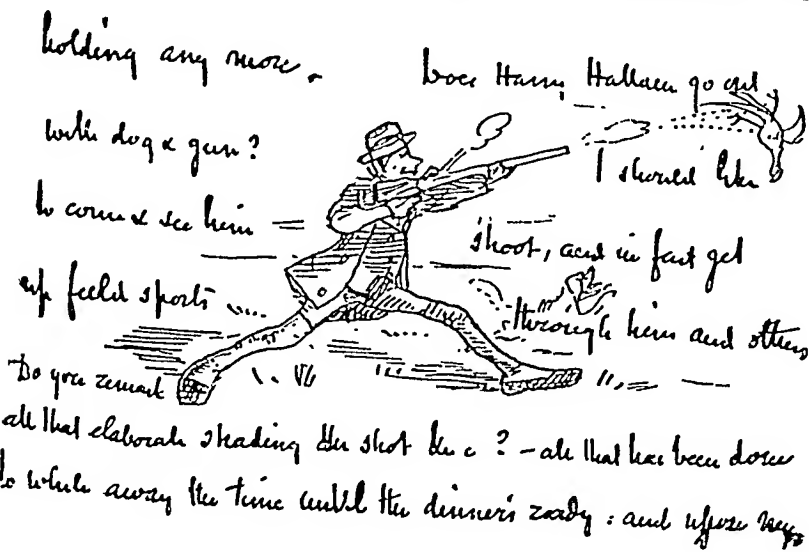 holding any more. Does Harry Hallam go out
with dog & gun? I should like
to come & see him shoot, and in fact get
up field sports through him and others
Do you remark
all that elaborate shading the shot &c ? – all that has been done
to while away the time until the dinner's ready : and upon my